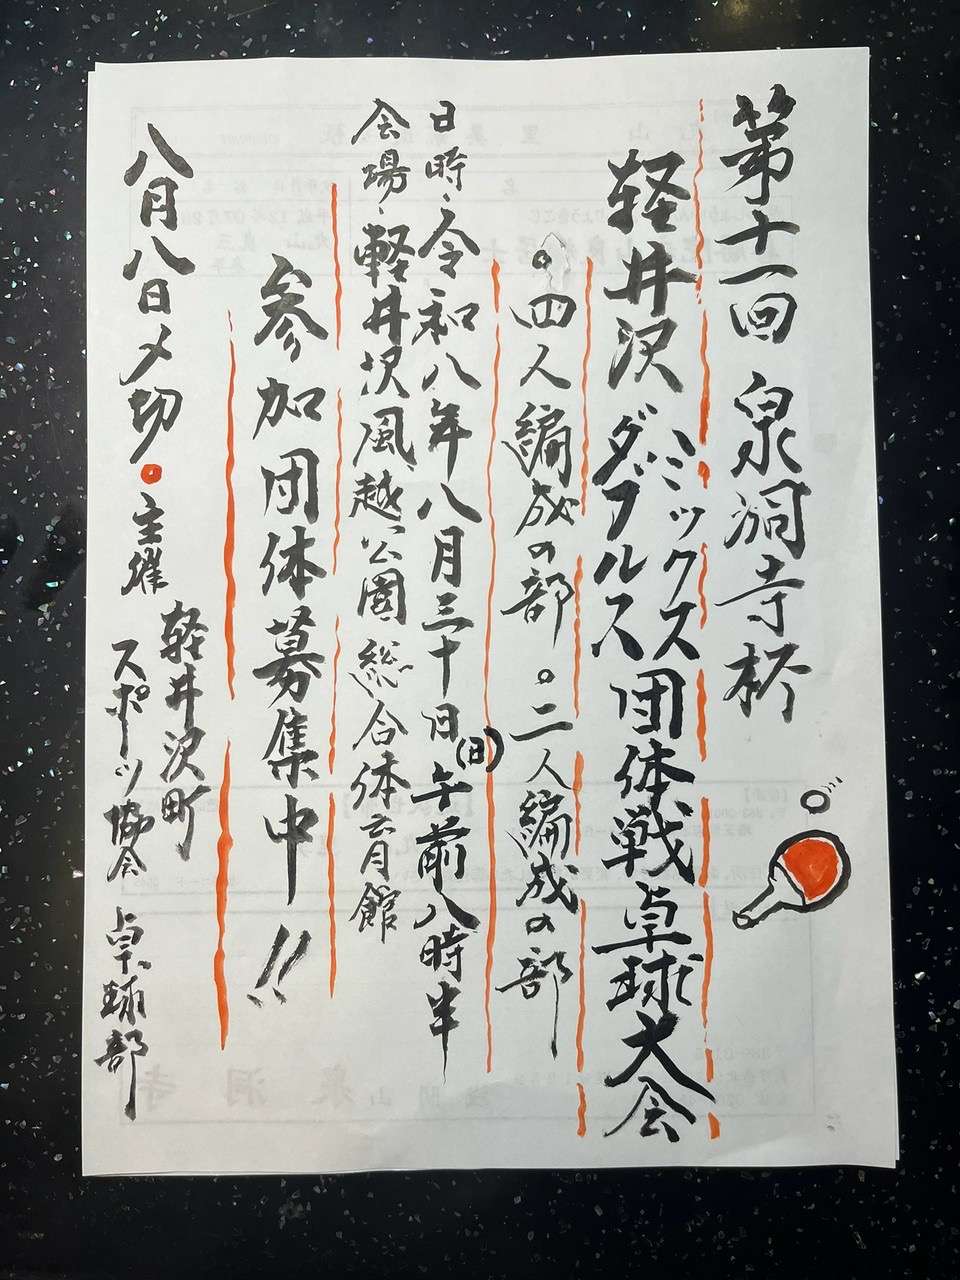 第十一回 泉洞寺杯
軽井沢 ミックスダブルス 団体戦卓球大会
。四人編成の部 。二人編成の部
日時、令和八年八月三十日(日)午前八時半
会場、軽井沢風越公園総合体育館
参加団体募集中!!
八月八日〆切。主催 軽井沢町スポーツ協会 卓球部